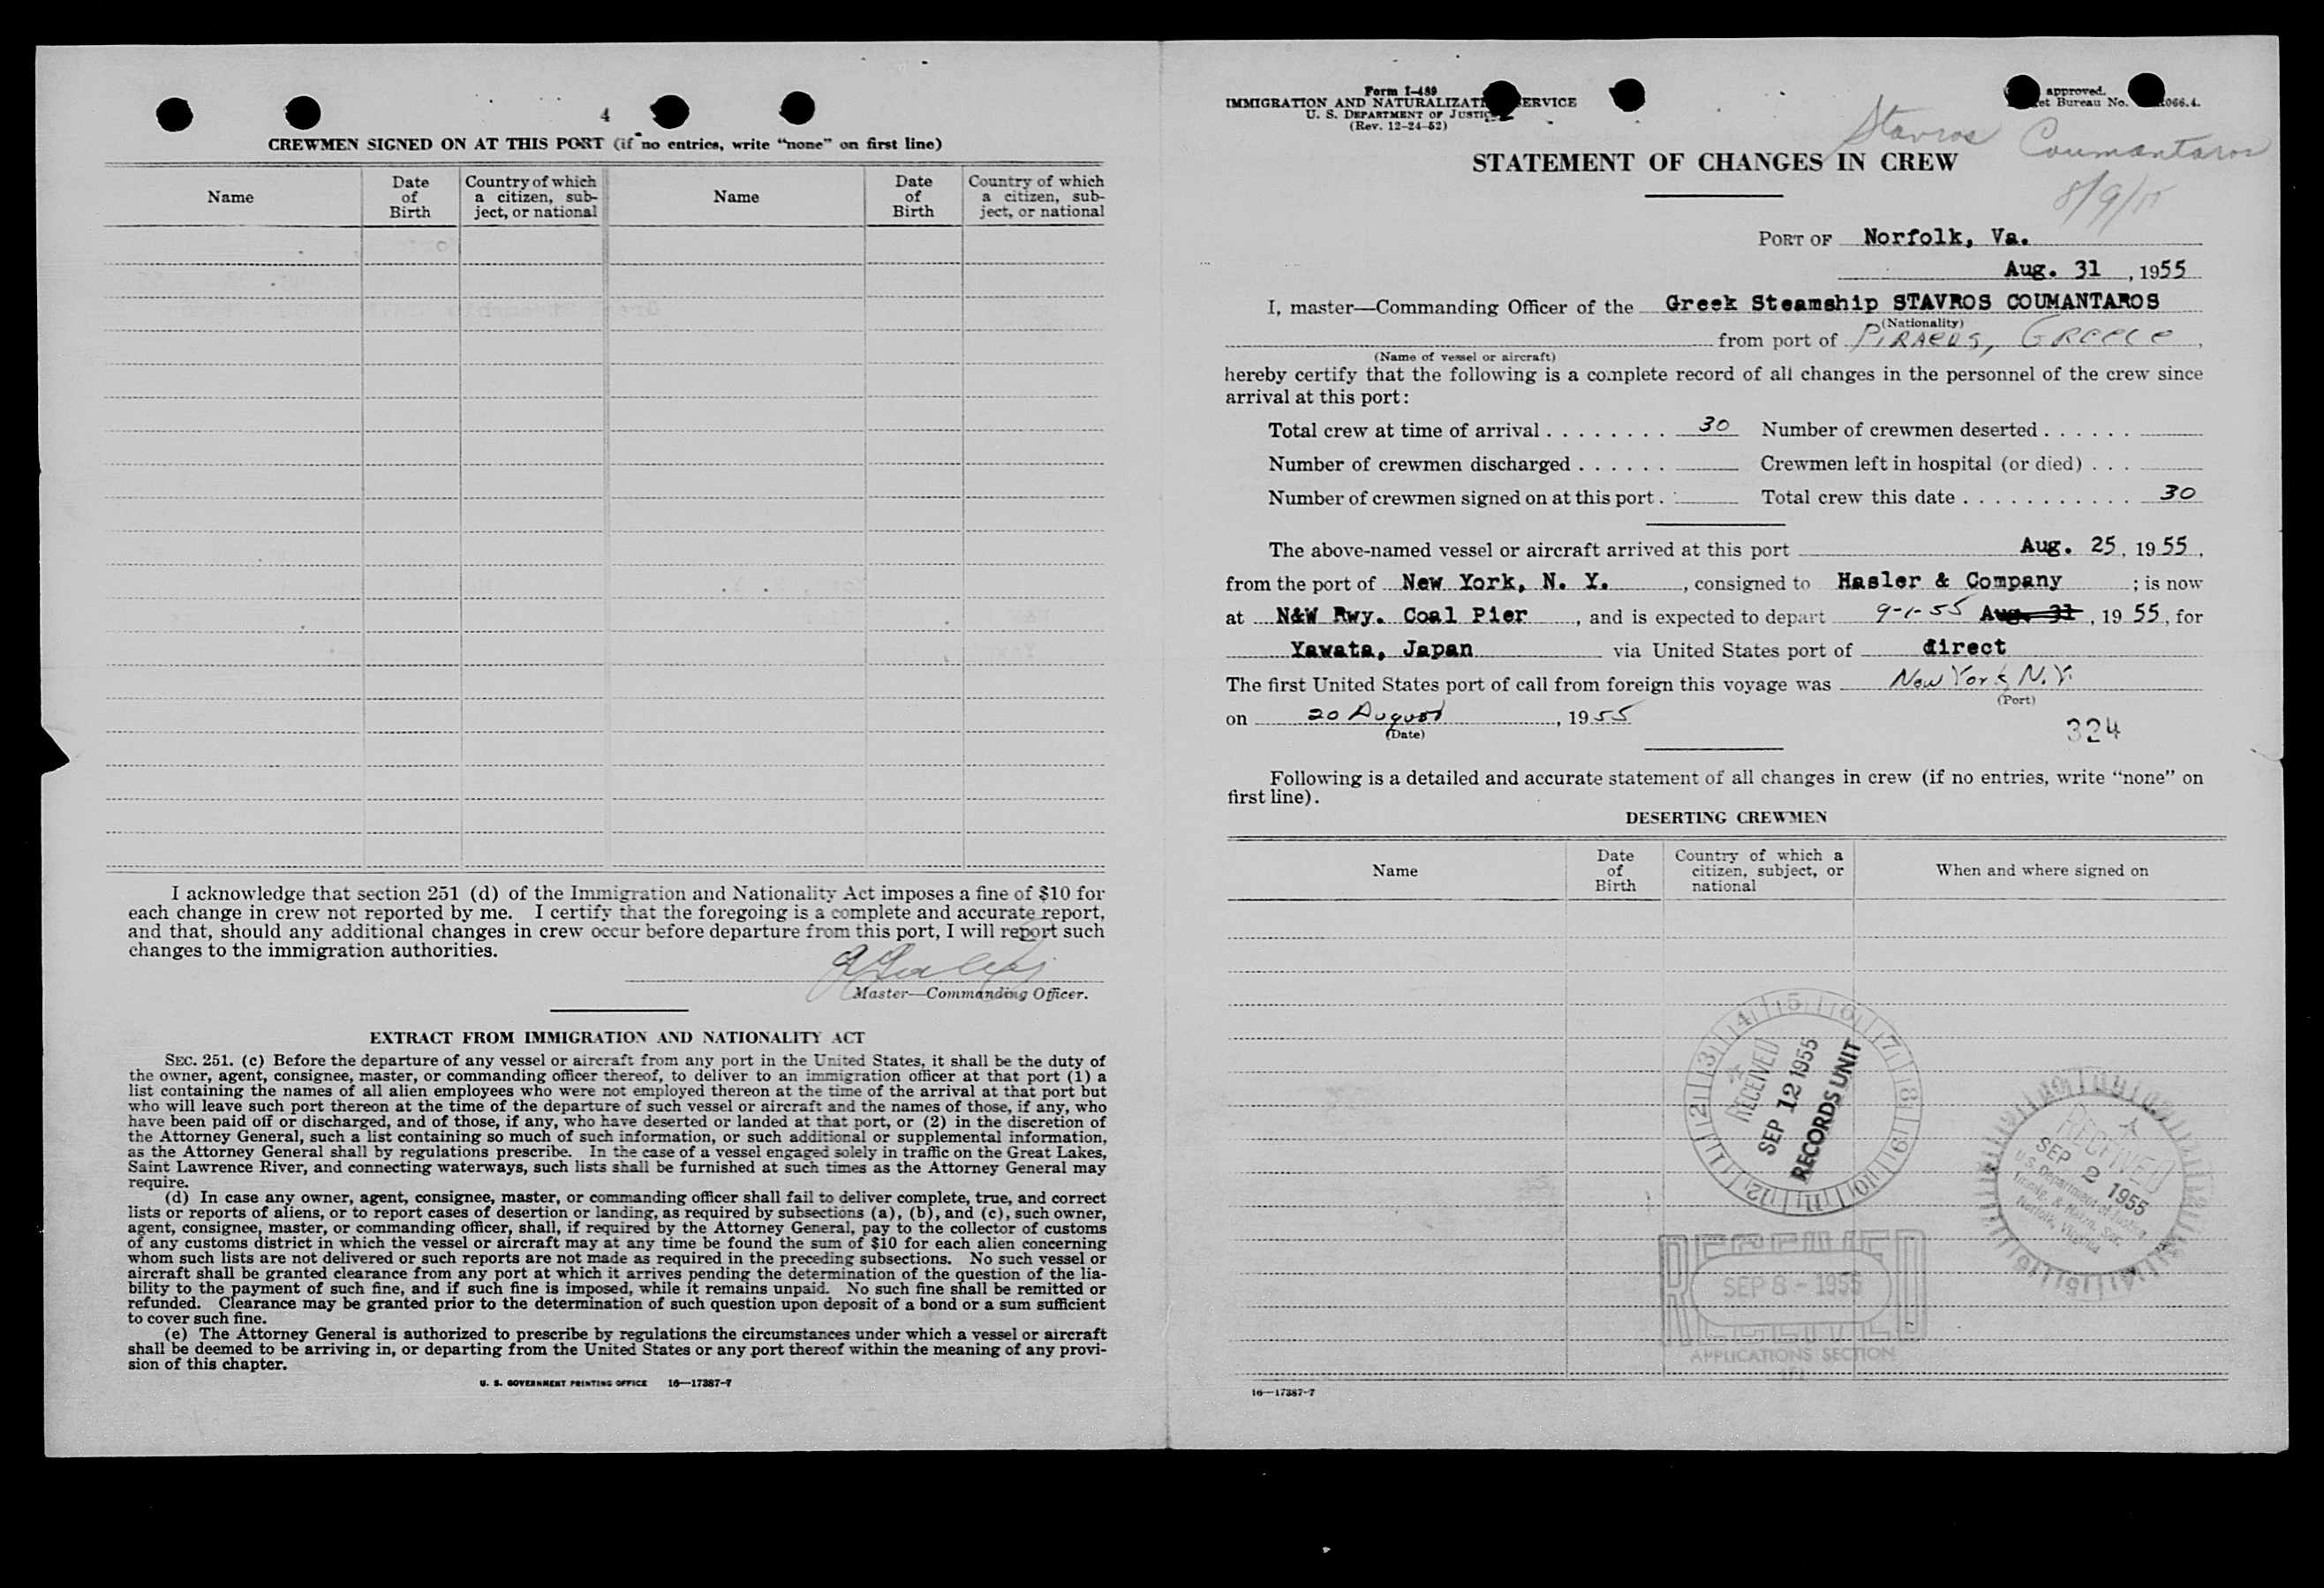 4
CREWMEN SIGNED ON AT THIS PORT (if no entries, write "none" on first line)
Name
Date of Birth
Country of which a citizen, subject, or national
Name
Date of Birth
Country of which a citizen, subject, or national
I acknowledge that section 251 (d) of the Immigration and Nationality Act imposes a fine of $10 for
each change in crew not reported by me. I certify that the foregoing is a complete and accurate report,
and that, should any additional changes in crew occur before departure from this port, I will report such
changes to the immigration authorities.
Master—Commanding Officer.
EXTRACT FROM IMMIGRATION AND NATIONALITY ACT
SEC. 251. (c) Before the departure of any vessel or aircraft from any port in the United States, it shall be the duty of
the owner, agent, consignee, master, or commanding officer thereof, to deliver to an immigration officer at that port (1) a
list containing the names of all alien employees who were not employed thereon at the time of the arrival at that port but
who will leave such port thereon at the time of the departure of such vessel or aircraft and the names of those, if any, who
have been paid off or discharged, and of those, if any, who have deserted or landed at that port, or (2) in the discretion of
the Attorney General, such a list containing so much of such information, or such additional or supplemental information,
as the Attorney General shall by regulations prescribe. In the case of a vessel engaged solely in traffic on the Great Lakes,
Saint Lawrence River, and connecting waterways, such lists shall be furnished at such times as the Attorney General may
require.
(d) In case any owner, agent, consignee, master, or commanding officer shall fail to deliver complete, true, and correct
lists or reports of aliens, or to report cases of desertion or landing, as required by subsections (a), (b), and (c), such owner,
agent, consignee, master, or commanding officer, shall, if required by the Attorney General, pay to the collector of customs
of any customs district in which the vessel or aircraft may at any time be found the sum of $10 for each alien concerning
whom such lists are not delivered or such reports are not made as required in the preceding subsections. No such vessel or
aircraft shall be granted clearance from any port at which it arrives pending the determination of the question of the lia-
bility to the payment of such fine, and if such fine is imposed, while it remains unpaid. No such fine shall be remitted or
refunded. Clearance may be granted prior to the determination of such question upon deposit of a bond or a sum sufficient
to cover such fine.
(e) The Attorney General is authorized to prescribe by regulations the circumstances under which a vessel or aircraft
shall be deemed to be arriving in, or departing from the United States or any port thereof within the meaning of any provi-
sion of this chapter.
U. S. GOVERNMENT PRINTING OFFICE 16—17387-7
Form I-489
IMMIGRATION AND NATURALIZATI ERVICE
U. S. DEPARTMENT OF JUSTIC
(Rev. 12-24-52)
approved.
et Bureau No. 066.4.
Stavros Coumantaros
STATEMENT OF CHANGES IN CREW
PORT OF Norfolk, Va.
Aug. 31, 1955
I, master—Commanding Officer of the Greek Steamship STAVROS COUMANTAROS
(Nationality)
from port of PIRAEUS, GREECE,
(Name of vessel or aircraft)
hereby certify that the following is a complete record of all changes in the personnel of the crew since
arrival at this port:
Total crew at time of arrival . . . . . . . . 30 Number of crewmen deserted . . . . . .
Number of crewmen discharged . . . . . . Crewmen left in hospital (or died) . . .
Number of crewmen signed on at this port . Total crew this date . . . . . . . . . . . . 30
The above-named vessel or aircraft arrived at this port Aug. 25, 1955,
from the port of New York, N. Y., consigned to Hasler & Company; is now
at N&W Rwy. Coal Pier, and is expected to depart 9-1-55 Aug. 31, 1955, for
Yawata, Japan via United States port of direct
The first United States port of call from foreign this voyage was New York N.Y.
(Port)
on 20 August, 1955
(Date)
324
Following is a detailed and accurate statement of all changes in crew (if no entries, write "none" on
first line).
DESERTING CREWMEN
Name
Date of Birth
Country of which a citizen, subject, or national
When and where signed on
RECEIVED
SEP 12 1955
RECORDS UNIT
RECEIVED
SEP 2 1955
U.S. Department of Justice
Immig. & Natzn. Svc.
Norfolk, Virginia
RECEIVED
SEP 8 - 1955
APPLICATIONS SECTION
16—17387-7